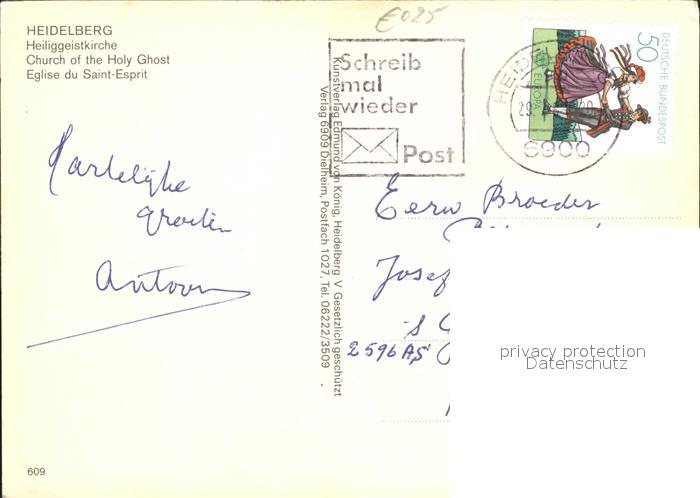 HEIDELBERG
Heiliggeistkirche
Church of the Holy Ghost
Eglise du Saint-Esprit
€025
Schreib
mal
wieder
Post
HEIDEL
29.
6900
50
DEUTSCHE BUNDESPOST
EUROPA
Kunstverlag Edmund von König, Heidelberg V Gesetzlich geschützt
Verlag 6909 Dielheim, Postfach 1027, Tel. 06222/3509
Hartelijke
groeten
Antoon
Eerw Broeder
Josef
's
2596 AS
privacy protection
Datenschutz
609